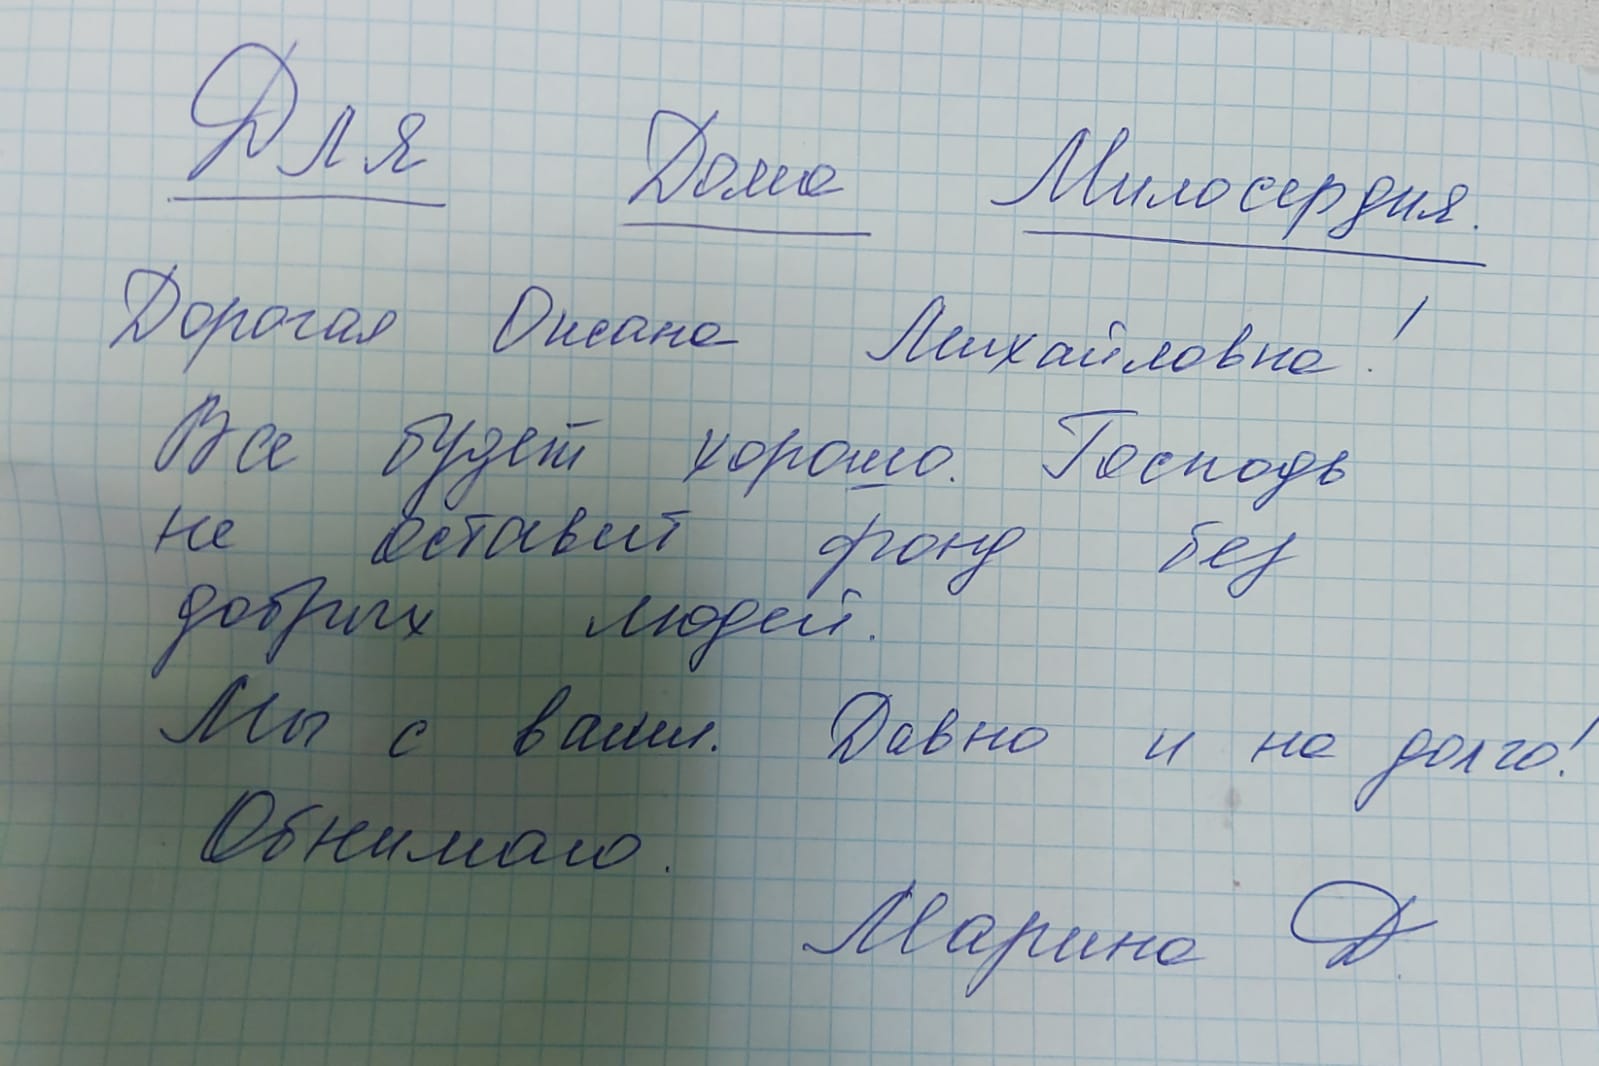 Для Дома Милосердия.
Дорогая Оксана Михайловна!
Все будет хорошо. Господь
не оставит фонд без
добрых людей.
Мы с вами. Давно и на долго!
Обнимаю.
Марина Д.